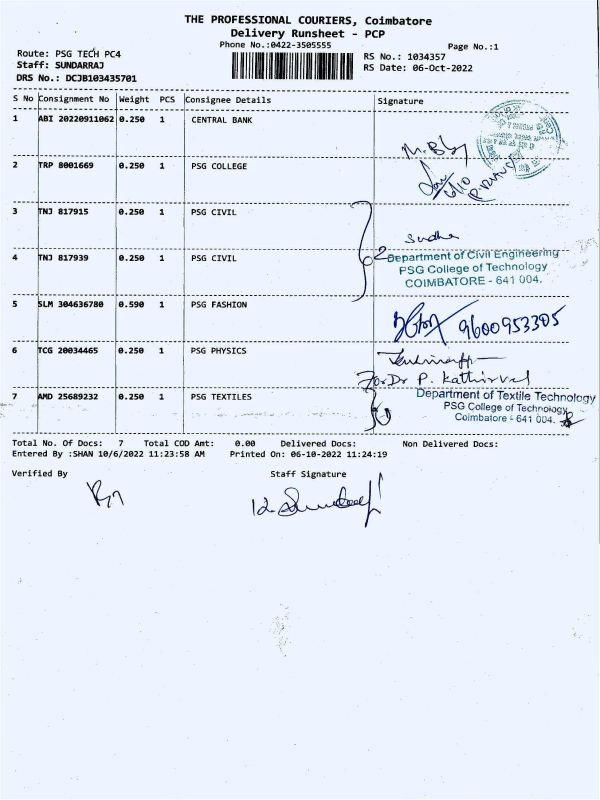 THE PROFESSIONAL COURIERS, Coimbatore
Delivery Runsheet - PCP
Phone No.:0422-3505555
Page No.:1
Route: PSG TECH PC4
RS No.: 1034357
Staff: SUNDARRAJ
RS Date: 06-Oct-2022
DRS No.: DCJB103435701
S No Consignment No Weight PCS Consignee Details Signature
1 ABI 20220911062 0.250 1 CENTRAL BANK
2 TRP 8001669 0.250 1 PSG COLLEGE
6/10
3 TNJ 817915 0.250 1 PSG CIVIL
Sudha
4 TNJ 817939 0.250 1 PSG CIVIL
2
Department of Civil Engineering
PSG College of Technology
COIMBATORE - 641 004.
5 SLM 304636780 0.590 1 PSG FASHION
9600953305
6 TCG 20034465 0.250 1 PSG PHYSICS
For Dr P. Kathirvel
7 AMD 25689232 0.250 1 PSG TEXTILES
Department of Textile Technology
PSG College of Technology
Coimbatore - 641 004.
Total No. Of Docs: 7 Total COD Amt: 0.00 Delivered Docs: Non Delivered Docs:
Entered By :SHAN 10/6/2022 11:23:58 AM Printed On: 06-10-2022 11:24:19
Verified By Staff Signature